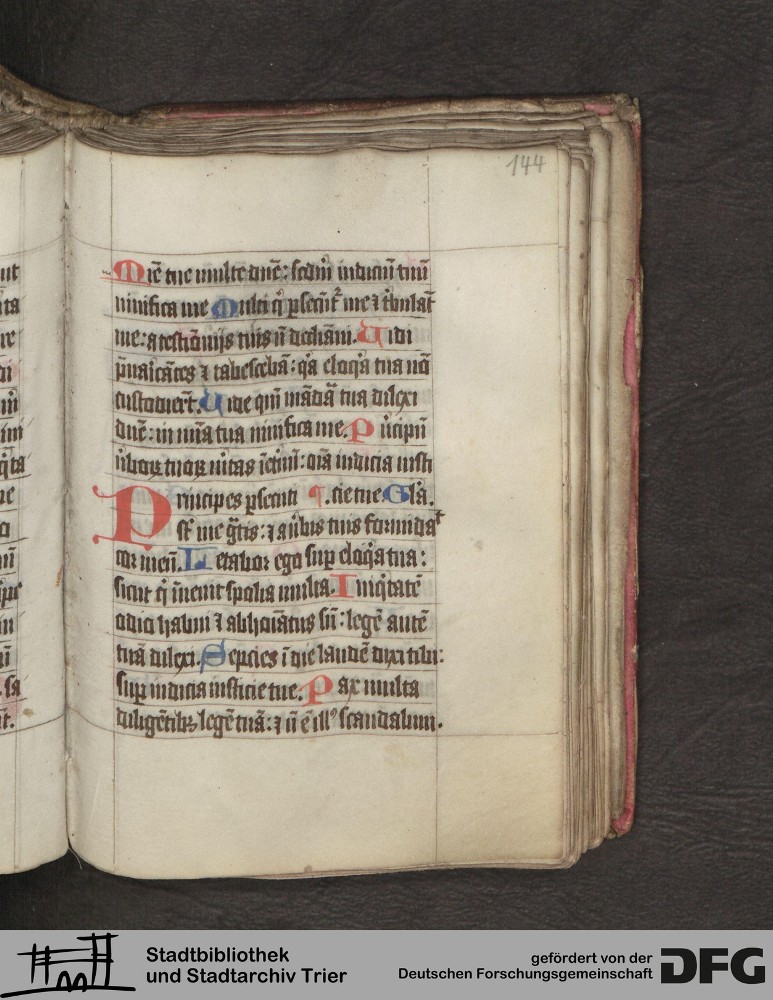 144
Mīe tue multe dn̄e: scdm̄ iudiciū tuū
vivifica me Multi q̄ ꝑsecūt᷑ me ⁊ tribulāt
me: a testimonijs tuis nō declinavi. Vidi
p̄uaricātes ⁊ tabescebā: q̇a eloq̇a tua nō
custodierūt. Vide qm̄ mādata tua dilexi
dn̄e: in mīa tua vivifica me. Principiū
v̄boꝝ tuoꝝ v̄itas ī et̄nū: oīa iudicia iusti
Principes ꝑsecuti ¶. cie tue. Glā.
sūt me gr̄tis: ⁊ a v̄bis tuis formidavit
cor meū. Letabor ego suꝑ eloq̇a tua:
sicut q̇ īvenit spolia multa. Iniq̇tatē
odio habui ⁊ abhoīatus sū: legē autē
tuā dilexi. Septies ī die laudē dixi tibi:
suꝑ iudicia iusticie tue. Pax multa
diligētibꝫ legē tuā: ⁊ nō ē ill᷒ scandalum.
Stadtbibliothek
und Stadtarchiv Trier
gefördert von der
Deutschen Forschungsgemeinschaft
DFG